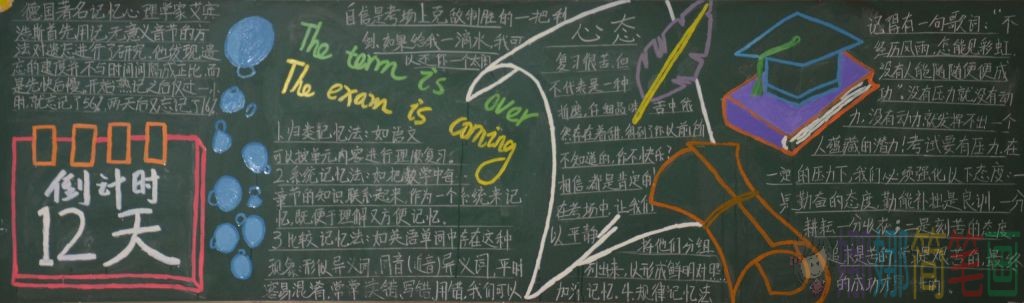 德国著名记忆心理学家艾宾
浩斯首先用记无意义音节的方
法对遗忘进行了研究,他发现遗
忘的速度并不与时间成正比,而
是先快后慢,开始熟记之后仅过一小
倒计时
12天
自信是考场上克敌制胜的一把利
剑,如果给我一滴水,我可
The term is over
The exam is coming
1.归类记忆法:如语文
可以按单元、内容进行理顺复习。
2.系统记忆法:如把数学中每一
章节的知识联系起来,作为一个系统来记
忆,既便于理解又方便记忆.
3.比较记忆法:如英语单词中存在这种
现象:形似异义词,同音(近音)异义词,平时
容易混淆,常常
写错,用错,我们可以
将他们分组
列出来,以形成鲜明对照
加深记忆.4.规律记忆法
心态
复习很苦,但
不代表是一种
不知道的,你不快乐?
相信都是肯定的
在考场中,让我们
以平静
记得有一句歌词:“不
经历风雨,怎能见彩虹
没有人能随随便便成
功”没有压力就没有动
力,没有动力就发挥不出一个
人蕴藏的潜力!考试要有压力,在
一定的压力下,我们必须强化以下态度:一
是勤奋的态度,勤能补拙是良训,一分
耕耘一分收获;二是刻苦的态度
的成功
简笔画